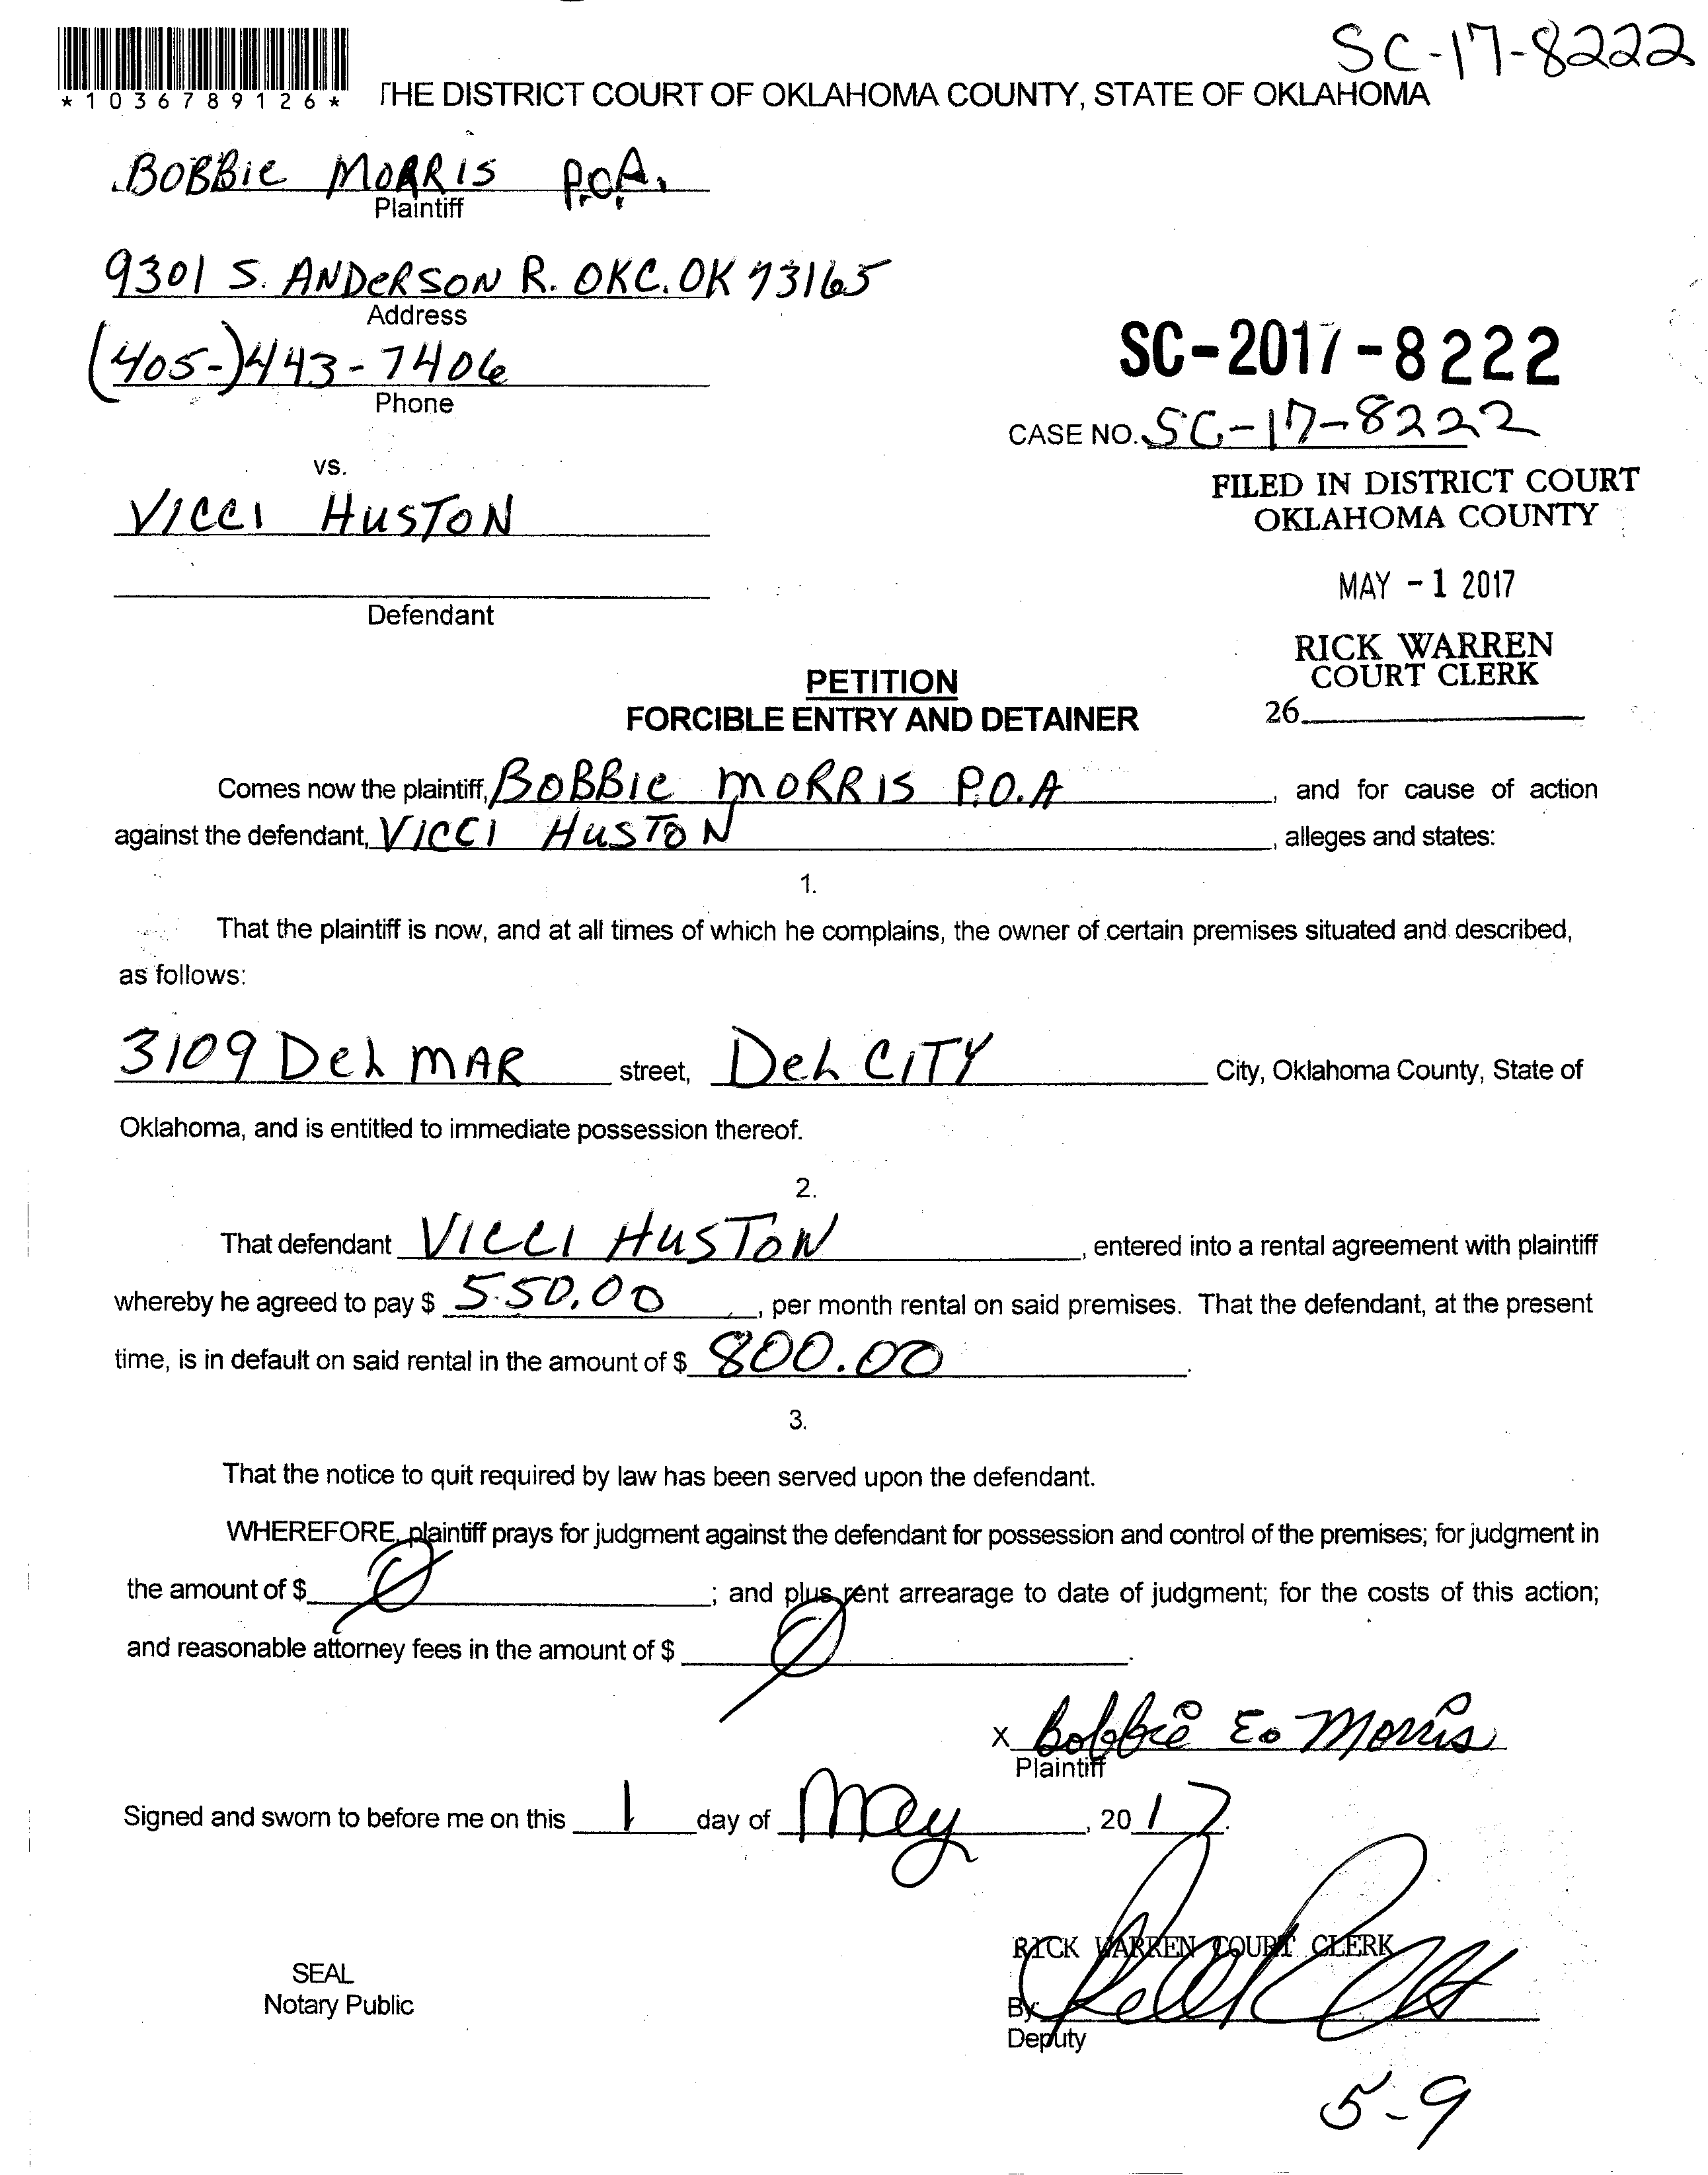 SC-17-8222
*1036789126*
THE DISTRICT COURT OF OKLAHOMA COUNTY, STATE OF OKLAHOMA
BOBBIE MORRIS P.O.A.
Plaintiff
9301 S. ANDERSON R. OKC. OK 73165
Address
(405-)443-7406
Phone
SC-2017-8222
CASE NO. SC-17-8222
vs.
FILED IN DISTRICT COURT
OKLAHOMA COUNTY
VICCI HUSTON
MAY -1 2017
Defendant
RICK WARREN
COURT CLERK
26
PETITION
FORCIBLE ENTRY AND DETAINER
Comes now the plaintiff, BOBBIE MORRIS P.O.A, and for cause of action
against the defendant, VICCI HUSTON, alleges and states:
1.
That the plaintiff is now, and at all times of which he complains, the owner of certain premises situated and described,
as follows:
3109 Del MAR street, Del CITY City, Oklahoma County, State of
Oklahoma, and is entitled to immediate possession thereof.
2.
That defendant VICCI HUSTON, entered into a rental agreement with plaintiff
whereby he agreed to pay $ 550.00, per month rental on said premises. That the defendant, at the present
time, is in default on said rental in the amount of $ 800.00.
3.
That the notice to quit required by law has been served upon the defendant.
WHEREFORE, plaintiff prays for judgment against the defendant for possession and control of the premises; for judgment in
the amount of $ 0; and plus rent arrearage to date of judgment; for the costs of this action;
and reasonable attorney fees in the amount of $ 0.
X Bobbie E. Morris
Plaintiff
Signed and sworn to before me on this 1 day of May, 2017.
RICK WARREN COURT CLERK
SEAL
Notary Public
By
Deputy
5-9